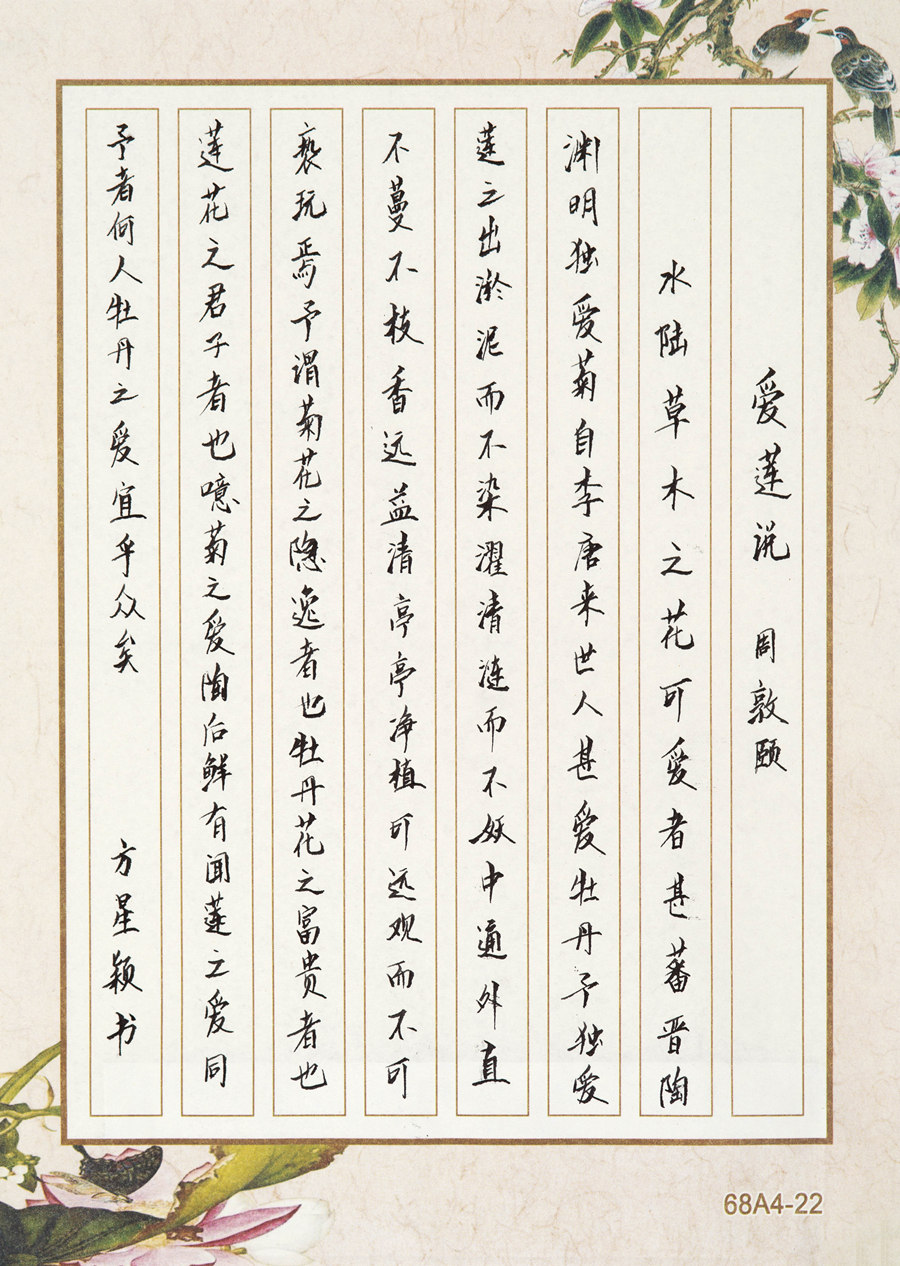 爱莲说 周敦颐
水陆草木之花可爱者甚蕃晋陶
渊明独爱菊自李唐来世人甚爱牡丹予独爱
莲之出淤泥而不染濯清涟而不妖中通外直
不蔓不枝香远益清亭亭净植可远观而不可
亵玩焉予谓菊花之隐逸者也牡丹花之富贵者也
莲花之君子者也噫菊之爱陶后鲜有闻莲之爱同
予者何人牡丹之爱宜乎众矣 方星颖书
68A4-22